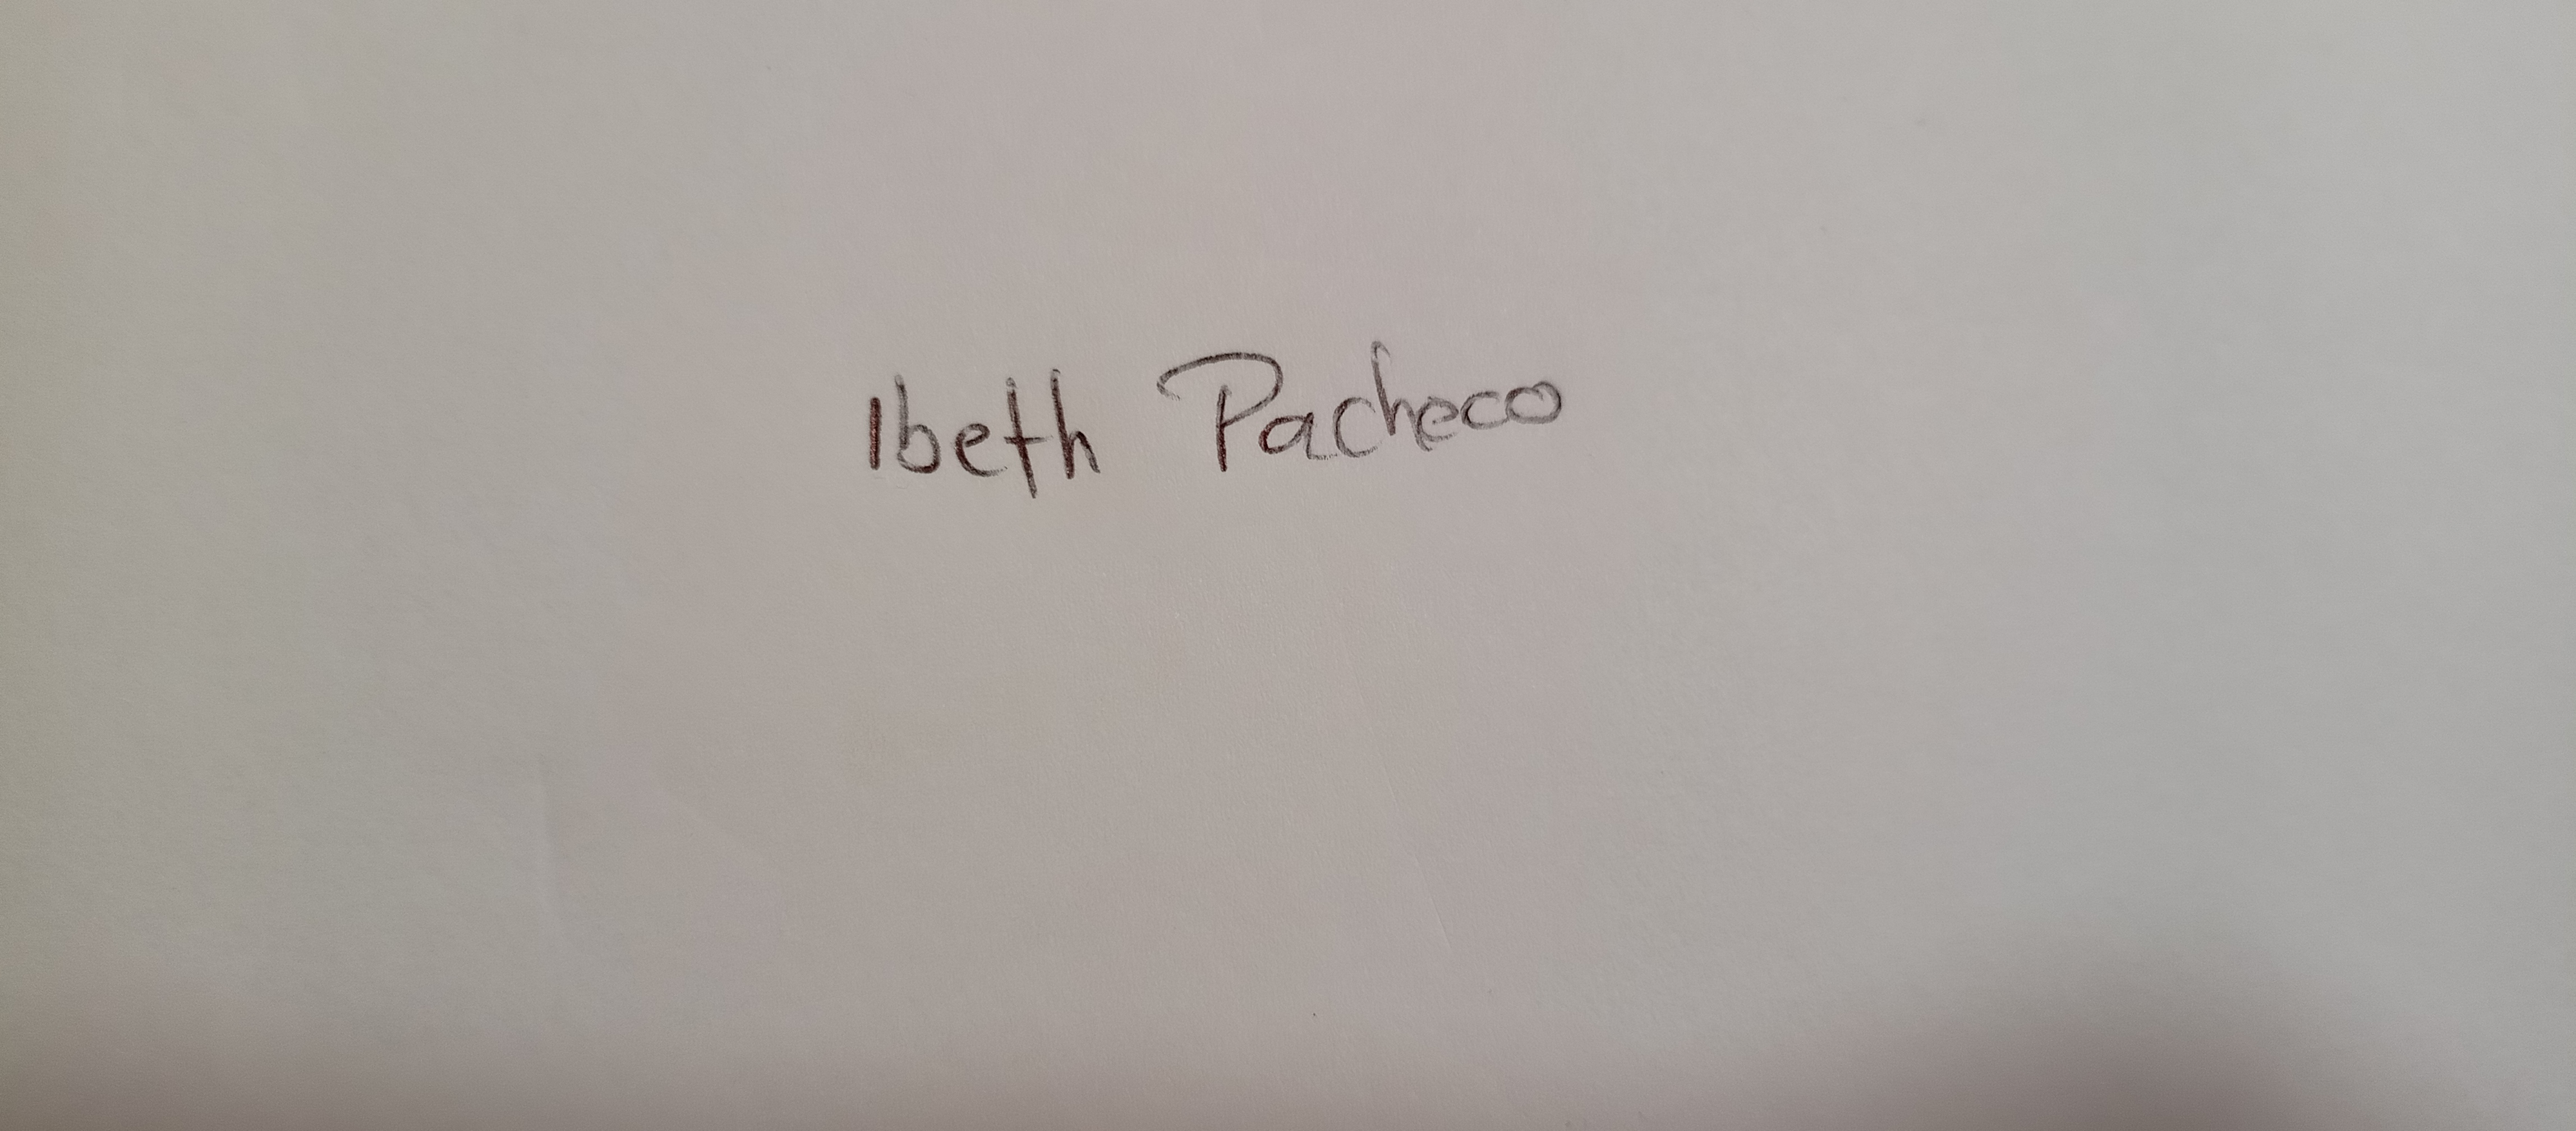 Ibeth Pacheco